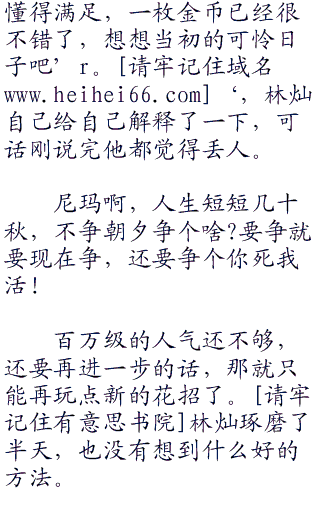 懂得满足，一枚金币已经很
不错了，想想当初的可怜日
子吧’r。[请牢记住域名
www.heihei66.com]‘，林灿
自己给自己解释了一下，可
话刚说完他都觉得丢人。
尼玛啊，人生短短几十
秋，不争朝夕争个啥?要争就
要现在争，还要争个你死我
活！
百万级的人气还不够，
还要再进一步的话，那就只
能再玩点新的花招了。[请牢
记住有意思书院]林灿琢磨了
半天，也没有想到什么好的
方法。